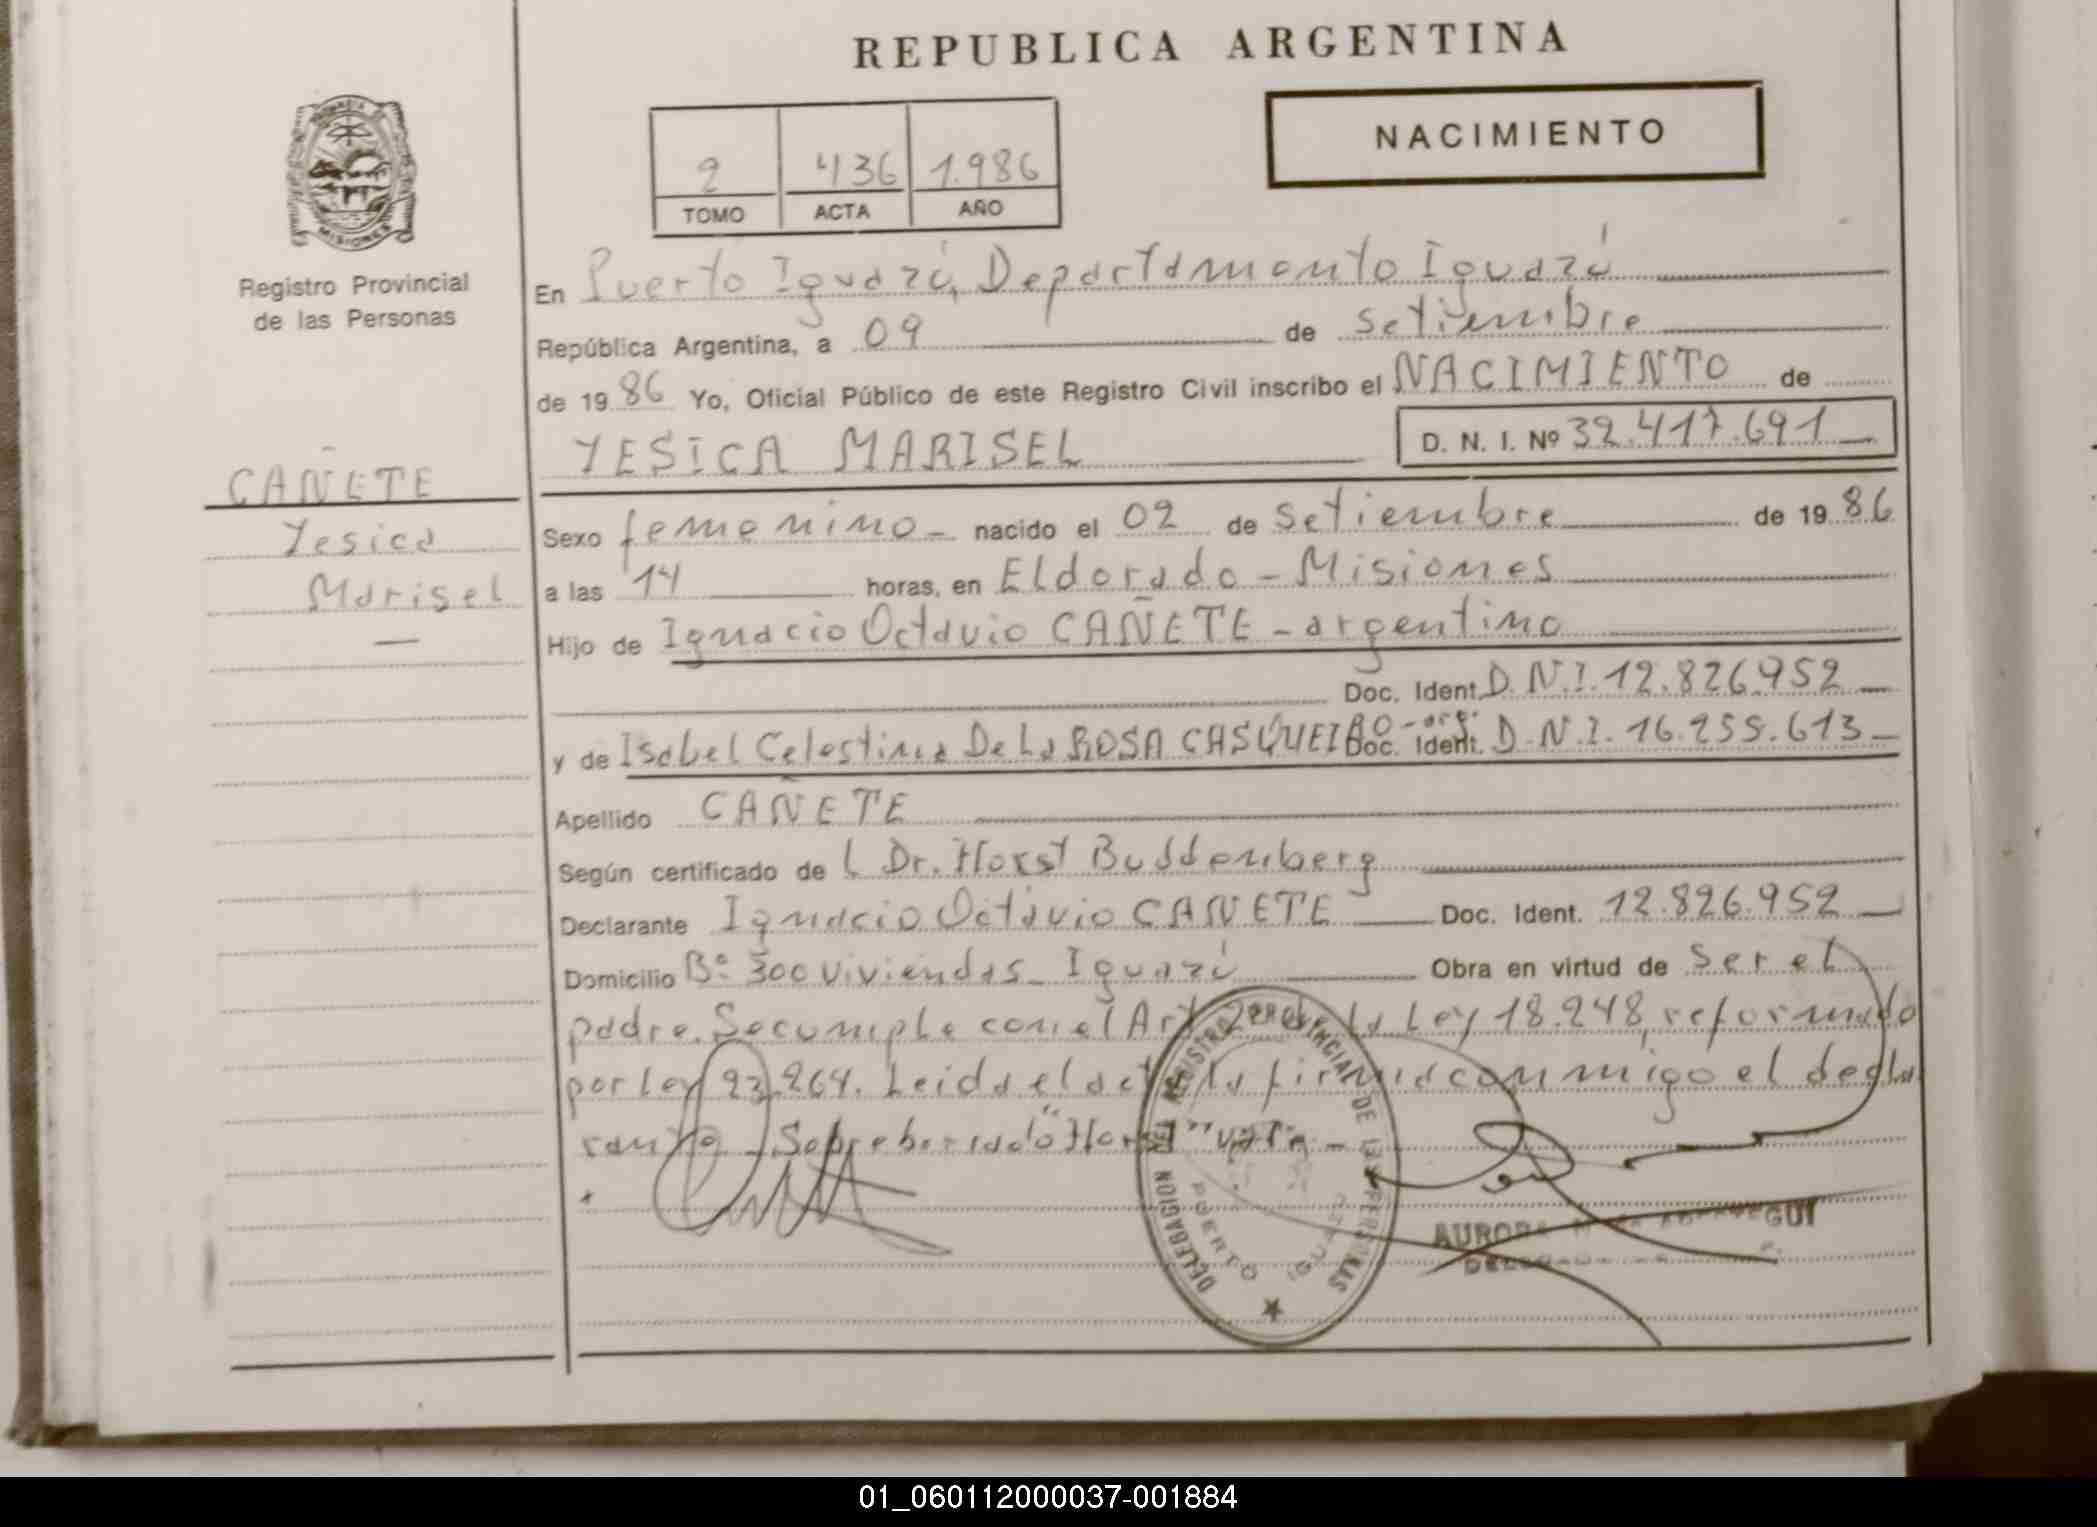 REPUBLICA ARGENTINA
NACIMIENTO
2 436 1.986
TOMO ACTA AÑO
PROVINCIA DE MISIONES
Registro Provincial
de las Personas
CAÑETE
Yesica
Marisel
En Puerto Iguazú, Departamento Iguazú
República Argentina, a 09 de Setiembre
de 19 86 Yo, Oficial Público de este Registro Civil inscribo el NACIMIENTO de
YESICA MARISEL D. N. I. Nº 32.417.691
Sexo femenino nacido el 02 de Setiembre de 19 86
a las 14 horas, en Eldorado - Misiones
Hijo de Ignacio Octavio CAÑETE - argentino
Doc. Ident. D.N.I. 12.826.952
y de Isabel Celestina De La ROSA CASQUEIRO - arg. Doc. Ident. D.N.I. 16.255.613
Apellido CAÑETE
Según certificado de l Dr. Horst
Declarante Ignacio Octavio CAÑETE Doc. Ident. 12.826.952
Domicilio Bº 300 viviendas - Iguazú Obra en virtud de ser el
padre. Se cumple con el Art. de la Ley 18.248, reformado
por Ley 23.264. Leida el acta la firma conmigo el decla
rante. Sobreborrado "Horst" vale.-
DELEGACION DEL REGISTRO PROVINCIAL DE LAS PERSONAS
PUERTO IGUAZU
AURORA
01_060112000037-001884